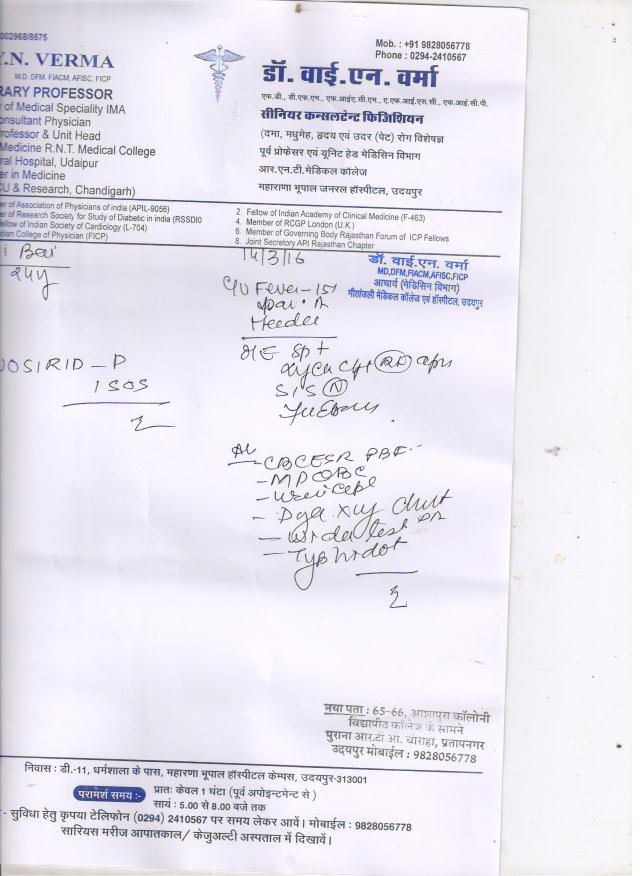 002968/8675
Mob. : +91 9828056778
Phone : 0294-2410567
.N. VERMA
M.D. DFM. FIACM, AFISC, FICP
डॉ. वाई.एन. वर्मा
RARY PROFESSOR
of Medical Speciality IMA
onsultant Physician
rofessor & Unit Head
Medicine R.N.T. Medical College
ral Hospital, Udaipur
er in Medicine
CU & Research, Chandigarh)
एफ.डी., डी.एफ.एम., एफ.आईए.सी.एम., ए.एफ.आई.एस.सी., एफ.आई.सी.पी.
सीनियर कन्सलटेन्ट फिजिशियन
(दमा, मधुमेह, हृदय एवं उदर (पेट) रोग विशेषज्ञ
पूर्व प्रोफेसर एवं यूनिट हेड मेडिसिन विभाग
आर.एन.टी.मेडिकल कॉलेज
महाराणा भूपाल जनरल हॉस्पीटल, उदयपुर
er of Association of Physicians of india (APIL-9056)
er of Research Society for Study of Diabetic in india (RSSDI0
ellow of Indian Society of Cardiology (L-704)
dian College of Physician (FICP)
2. Fellow of Indian Academy of Clinical Medicine (F-463)
4. Member of RCGP London (U.K.)
6. Member of Governing Body Rajasthan Forum of ICP Fellows
8. Joint Secretory API Rajasthan Chapter
14/3/16
24y
डॉ. वाई.एन. वर्मा
MD,DFM,FIACM,AFISC,FICP
आचार्य (मेडिसिन विभाग)
गीतांजली मेडिकल कॉलेज एवं हॉस्पीटल, उदयपुर
C/o Fever - 15
OSIRID - P
1 SOS
S/S N
- CBC ESR PBF
- MP QBC
- Widal test
- Typhidot
नया पता : 65-66, आशापुरा कॉलोनी
विद्यापीठ कॉलेज के सामने
पुराना आर.टी.आ. चौराहा, प्रतापनगर
उदयपुर मोबाईल : 9828056778
निवास : डी.-11, धर्मशाला के पास, महारणा भूपाल हॉस्पीटल केम्पस, उदयपुर-313001
परामर्श समय :-
प्रातः केवल 1 घंटा (पूर्व अपोइन्टमेन्ट से )
सायं : 5.00 से 8.00 बजे तक
- सुविधा हेतु कृपया टेलिफोन (0294) 2410567 पर समय लेकर आवें। मोबाईल : 9828056778
सारियस मरीज आपातकाल/ केजुअल्टी अस्पताल में दिखावें।